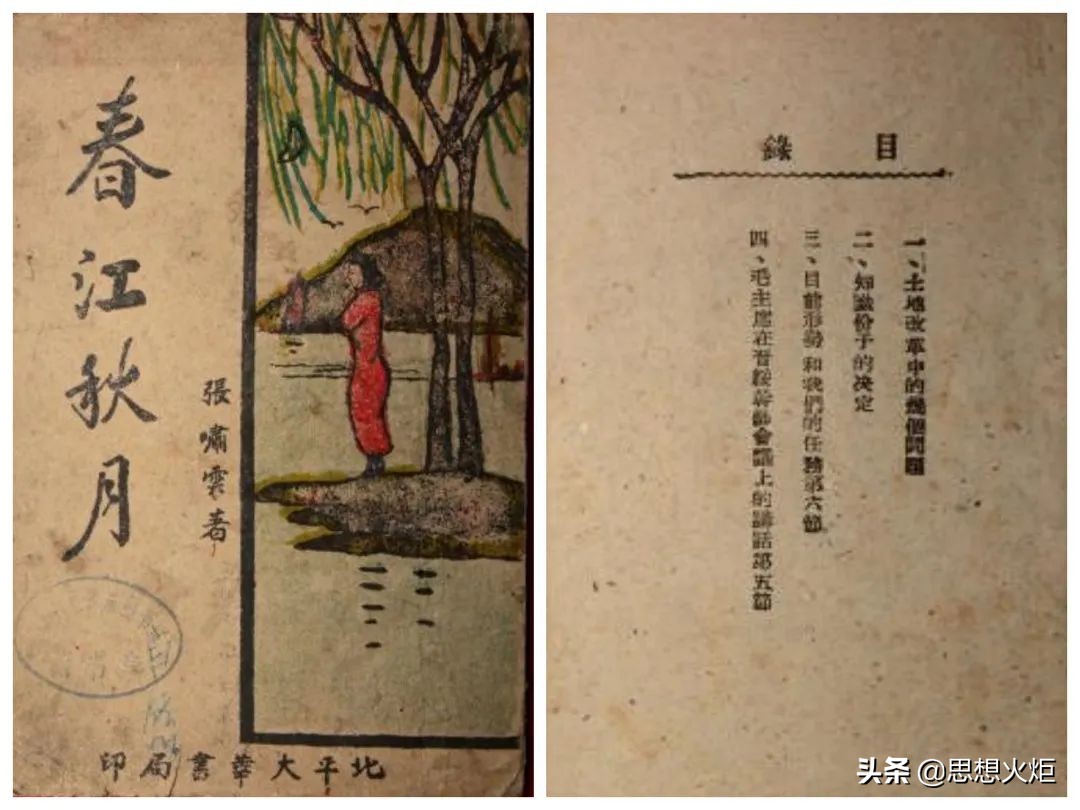 春江秋月
張嘯雲著
北平大華書局印
目錄
一、土地改革中的幾個問題
二、知識份子的決定
三、目前形勢和我們的任務第六節
四、毛主席在晋綏幹部會議上的講話第五節
头条 @思想火炬